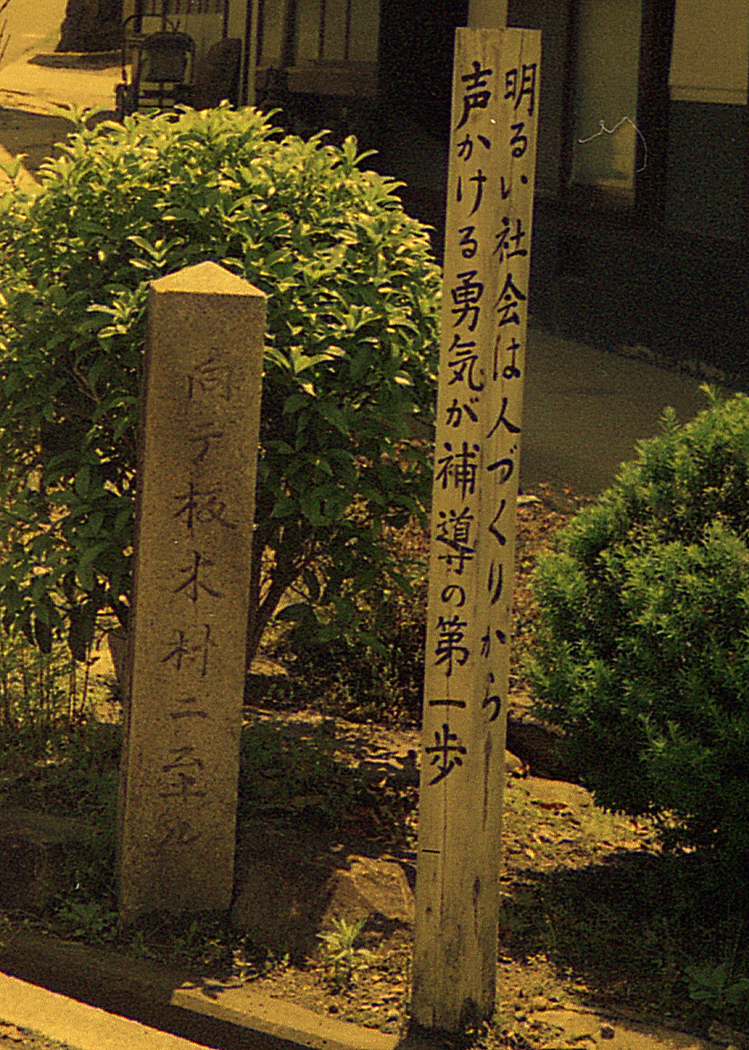 明るい社会は人づくりから
声かける勇気が補導の第一歩
向テ板木村ニ至ル